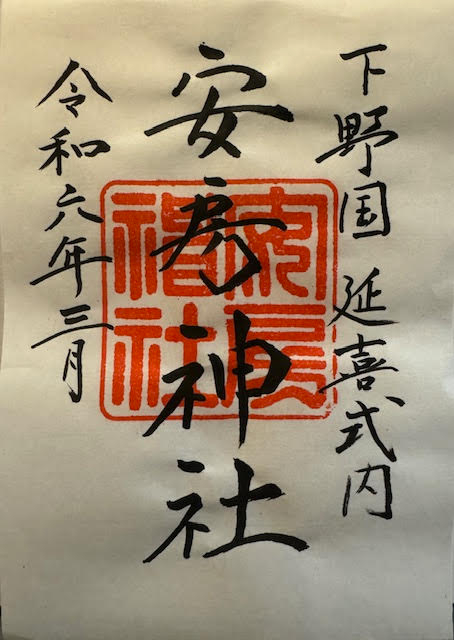 下野国 延喜式内
安房神社
安房神社
令和六年三月